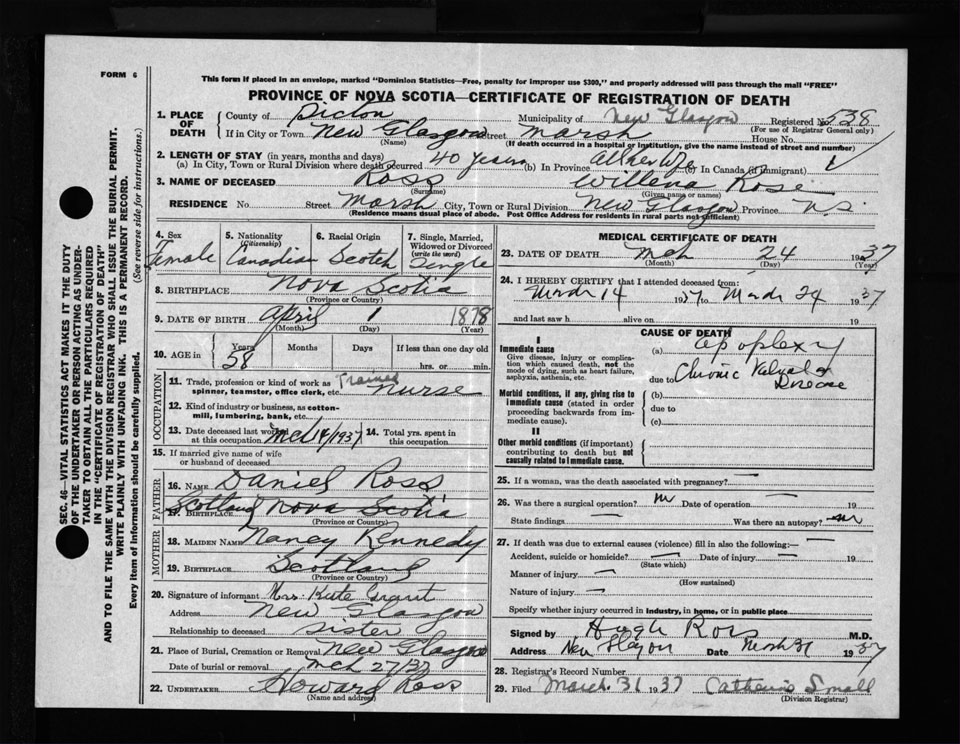 FORM 6
This form if placed in an envelope, marked "Dominion Statistics—Free, penalty for improper use $300," and properly addressed will pass through the mail "FREE"
PROVINCE OF NOVA SCOTIA—CERTIFICATE OF REGISTRATION OF DEATH
SEC. 46—VITAL STATISTICS ACT MAKES IT THE DUTY
OF THE UNDERTAKER OR PERSON ACTING AS UNDER-
TAKER TO OBTAIN ALL THE PARTICULARS REQUIRED
IN THE "CERTIFICATE OF REGISTRATION OF DEATH"
AND TO FILE THE SAME WITH THE DIVISION REGISTRAR WHO SHALL ISSUE THE BURIAL PERMIT.
WRITE PLAINLY WITH UNFADING INK. THIS IS A PERMANENT RECORD.
Every item of information should be carefully supplied. (See reverse side for instructions.)
1. PLACE OF DEATH
County of Pictou Municipality of New Glasgow Registered No. 538
(For use of Registrar General only)
If in City or Town New Glasgow Street Marsh House No.
(Name) (If death occurred in a hospital or institution, give the name instead of street and number)
2. LENGTH OF STAY (in years, months and days)
(a) In City, Town or Rural Division where death occurred 40 years (b) In Province All her life (c) In Canada (if immigrant)
3. NAME OF DECEASED Ross Willena Rose
(Surname) (Given name or names)
RESIDENCE No. Street Marsh City, Town or Rural Division New Glasgow Province N.S.
(Residence means usual place of abode. Post Office Address for residents in rural parts not sufficient)
4. Sex Female
5. Nationality (Citizenship) Canadian
6. Racial Origin Scotch
7. Single, Married, Widowed or Divorced (write the word) Single
8. BIRTHPLACE Nova Scotia
(Province or Country)
9. DATE OF BIRTH April 1 1878
(Month) (Day) (Year)
10. AGE in Years 58 Months Days If less than one day old
hrs. or min.
OCCUPATION
11. Trade, profession or kind of work as spinner, teamster, office clerk, etc. Trained Nurse
12. Kind of industry or business, as cotton-mill, lumbering, bank, etc.
13. Date deceased last worked at this occupation Mch 14/1937 14. Total yrs. spent in this occupation
15. If married give name of wife or husband of deceased
FATHER
16. NAME Daniel Ross
17. BIRTHPLACE Scotland Nova Scotia
(Province or Country)
MOTHER
18. MAIDEN NAME Nancy Kennedy
19. BIRTHPLACE Scotland
(Province or Country)
20. Signature of informant Mrs. Kate Grant
Address New Glasgow
Relationship to deceased Sister
21. Place of Burial, Cremation or Removal New Glasgow
Date of burial or removal Mch 27/37
22. UNDERTAKER Howard Ross
(Name and address)
MEDICAL CERTIFICATE OF DEATH
23. DATE OF DEATH Mch 24 1937
(Month) (Day) (Year)
24. I HEREBY CERTIFY that I attended deceased from:
March 14 1937 to March 24 1937
and last saw h alive on 19
CAUSE OF DEATH
I
Immediate cause
Give disease, injury or complication which caused death, not the mode of dying, such as heart failure, asphyxia, asthenia, etc.
(a) Apoplexy
due to Chronic Valvular Disease
Morbid conditions, if any, giving rise to immediate cause (stated in order proceeding backwards from immediate cause).
(b)
due to
(c)
II
Other morbid conditions (if important) contributing to death but not causally related to immediate cause.
25. If a woman, was the death associated with pregnancy? —
26. Was there a surgical operation? no Date of operation — 19
State findings — Was there an autopsy? no
27. If death was due to external causes (violence) fill in also the following: —
Accident, suicide or homicide? — Date of injury — 19
(State which)
Manner of injury —
(How sustained)
Nature of injury —
Specify whether injury occurred in industry, in home, or in public place
Signed by Hugh Ross M.D.
Address New Glasgow Date March 31 1937
28. Registrar's Record Number
29. Filed March 31 1937 Catherine Small
(Division Registrar)